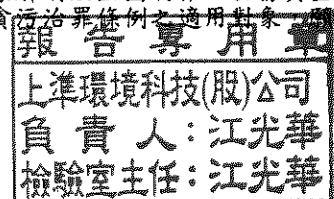 貪污治罪條例之適用對象
報告專用章
上準環境科技(股)公司
負責人：江光華
檢驗室主任：江光華